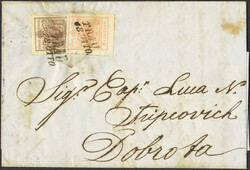 Sig.r Cap.n Luca N.
Tripcovich
Dobrota